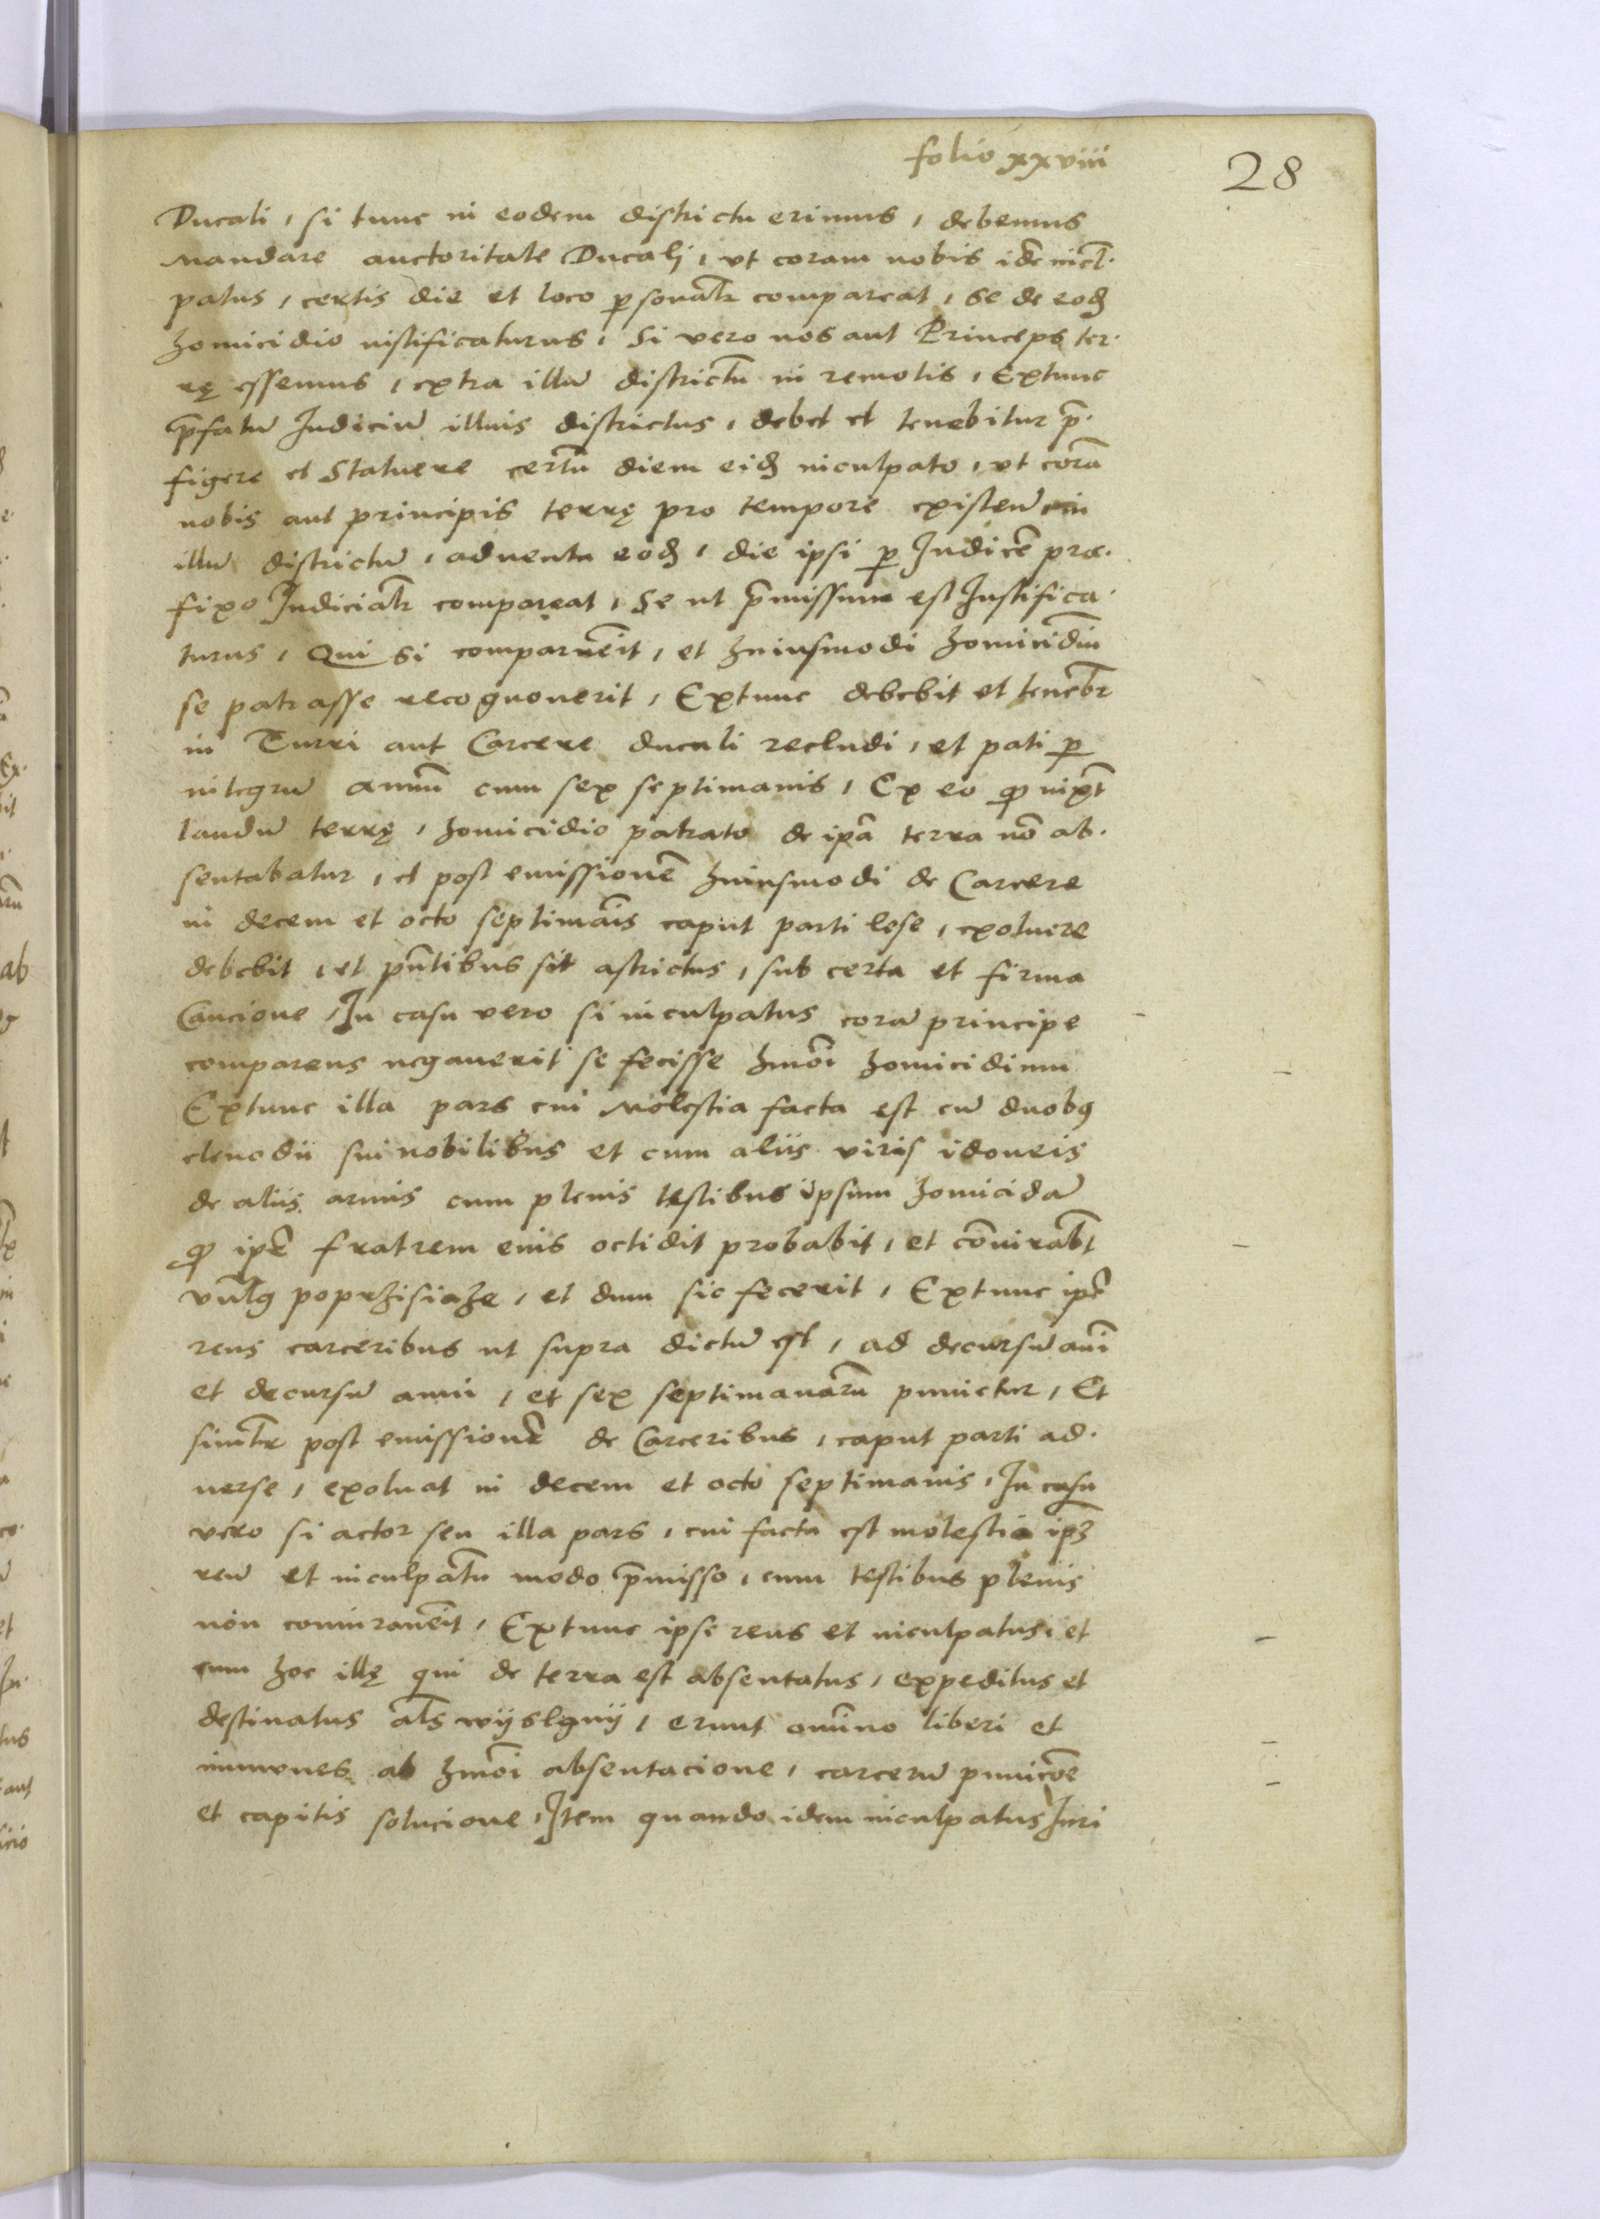 folio xxviii
28
Ducali, si tunc in eodem districtu erimus, debemus
mandare auctoritate Ducalj, vt coram nobis idẽ incl̃·
patus, certis die et loco ꝑsonalr̃ compareat, se de eodꝫ
homicidio iustificaturus, Si vero nos aut Princeps ter·
rę essemus, extra illũ districtũ in remotis, Extunc
p̃fatũ Iudiciũ illius districtus, debet et tenebitur p̃·
figere et Statuere certũ diem eidꝫ inculpato, vt corã
nobis aut principis terrę pro tempore existeñ in
illũ districtũ, aduentu eodꝫ, die ipsi ꝑ Iudicẽ præ·
fixo Iudicialr̃ compareat, Se ut p̃missum est Iustifica·
turus, Qui si comparuẽit, et huiusmodi homicidiũ
se patrasse recognouerit, Extunc debebit et teneb̃r
in Turri aut Carcere ducali recludi, et pati ꝑ
integrũ annũ cum sex septimanis, Ex eo ꝙ iuxt̃
laudũ terrę, homicidio patrato de ip̃a terra nõ ab·
sentabatur, et post emissionẽ huiusmodi de Carcere
in decem et octo septimãis caput parti lese, exoluere
debebit, et pñtibus sit astrictus, sub certa et firma
Caucione, In casu vero si inculpatus corã principe
comparens negauerit se fecisse hmõi homicidium
Extunc illa pars cui molestia facta est cũ duobꝰ
clenodii sui nobilibus et cum aliis viris idoneis
de aliis armis cum plenis testibus ipsum homicidã
ꝙ ip̃e fratrem eius occidit probabit, et cõiurab̃t
vũlgꝰ poprzisiaze, et dum sic fecerit, Extunc ip̃e
reus carceribus ut supra dictũ est, ad decursũ añi
et decursũ anni, et sex septimanarũ punietur, Et
simlr̃ post emissionẽ de Carceribus, caput parti ad·
uerse, exoluat in decem et octo septimanis, In casu
vero si actor seu illa pars, cui facta est molestia ip̃ꝫ
reũ et inculpatũ modo p̃misso, cum testibus plenis
non coniurauẽit, Extunc ipse reus et inculpatus, et
cum hoc illę qui de terra est absentatus, expeditus et
destinatus al̃s wyslany, erunt omĩno liberi et
immunes ab hmõi absentacione, carcerũ punicõe
et capitis solucione, Item quando idem inculpatus Iuri